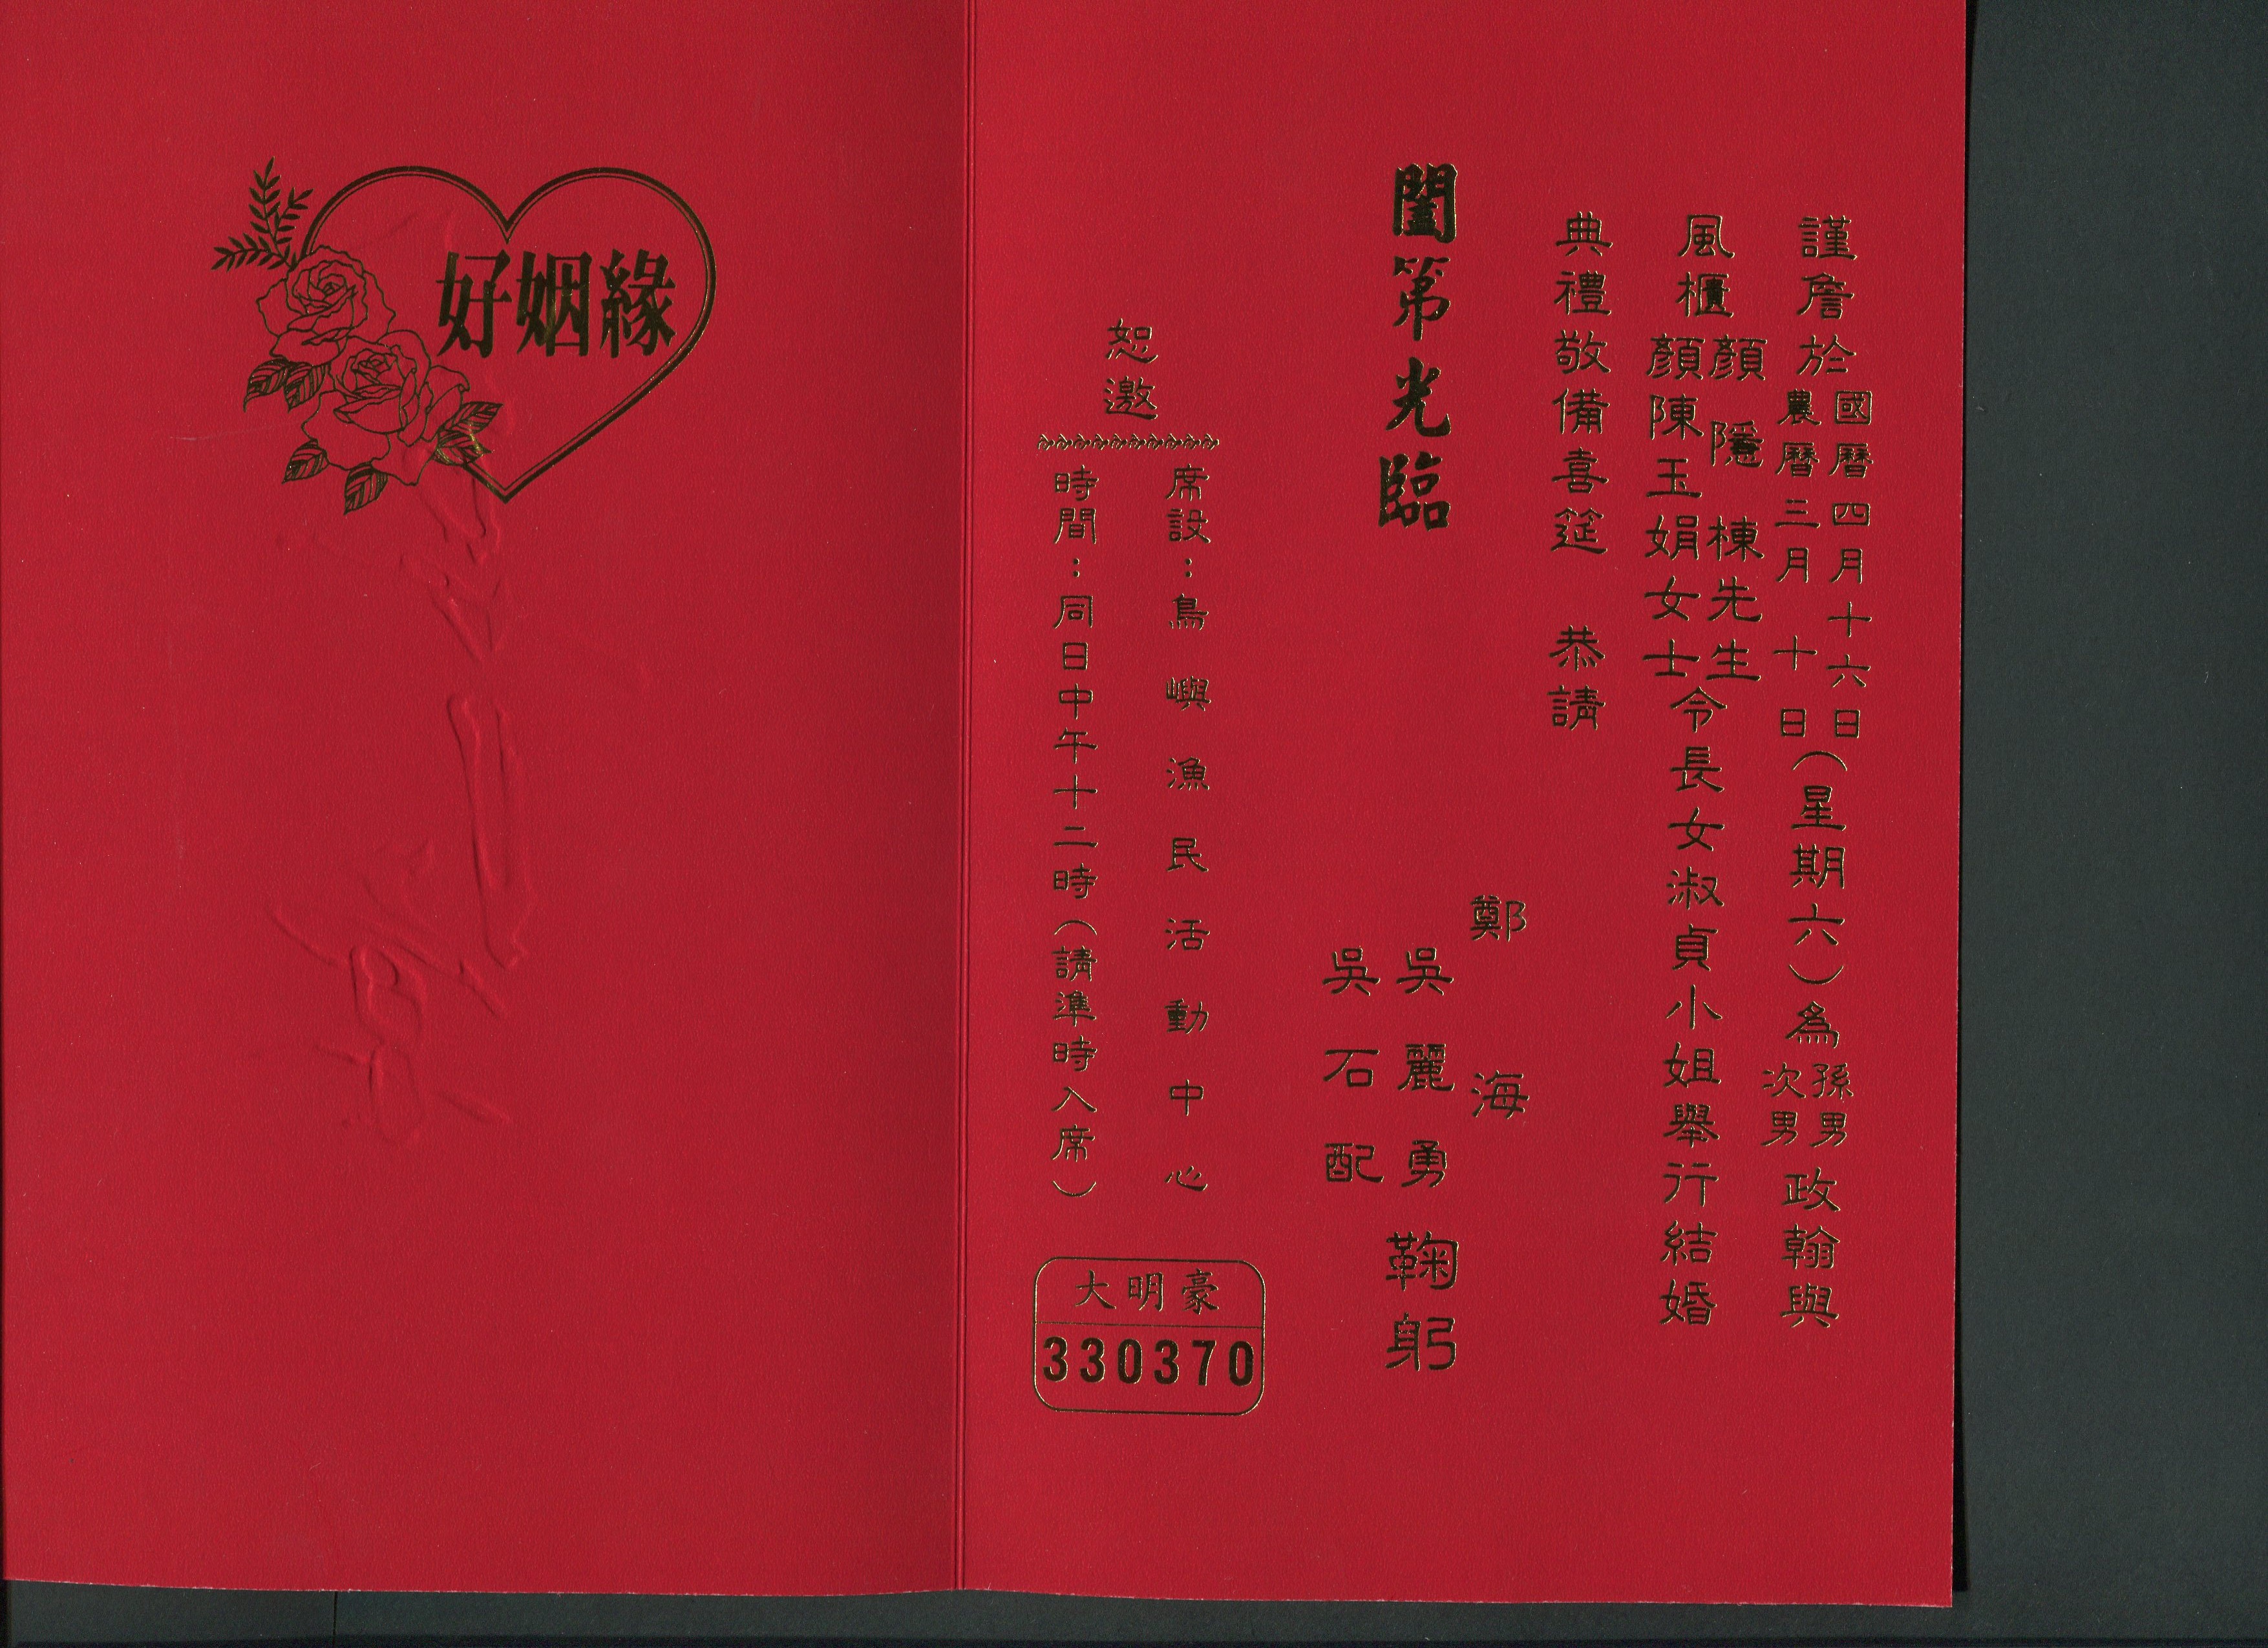 謹詹於國曆四月十六日農曆三月十日(星期六)為孫男次男政翰與
風櫃顏隱棟先生顏陳玉娟女士令長女淑貞小姐舉行結婚
典禮敬備喜筵 恭請
闔第光臨
鄭海
吳麗勇
吳石配
鞠躬
恕邀
席設:鳥嶼漁民活動中心
時間:同日中午十二時(請準時入席)
大明豪
330370
好姻緣